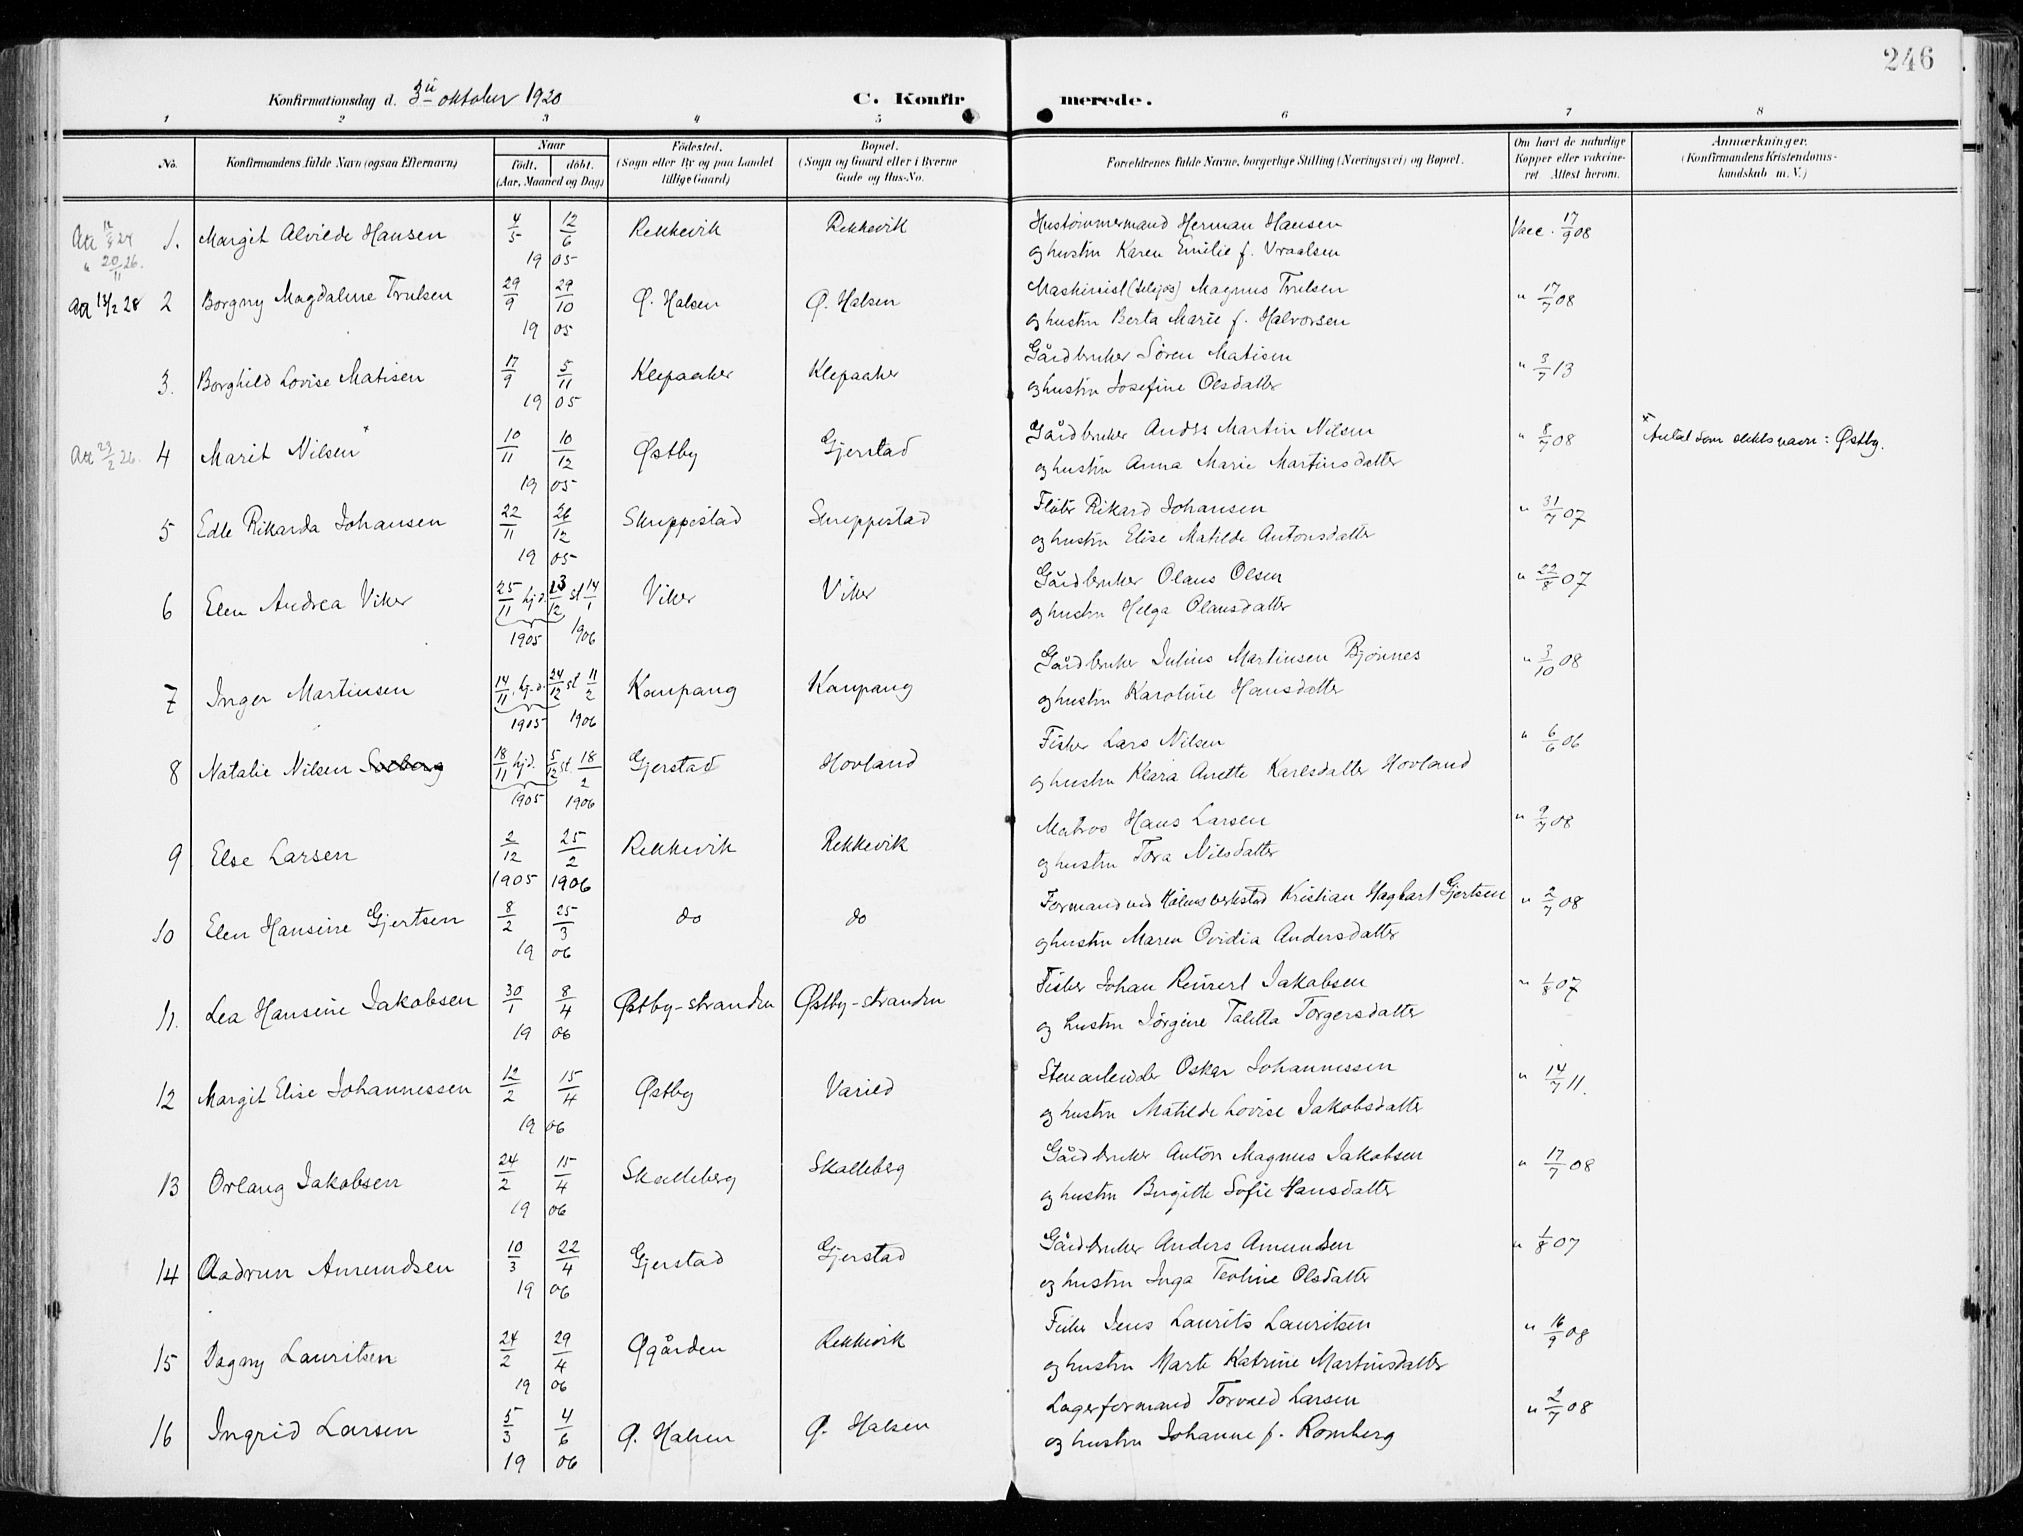 246
Konfirmationsdag d. 3die oktober 1920 C. Konfir merede.
1 2 3 4 5 6 7 8
No. Konfirmandens fulde Navn (ogsaa Efternavn) Naar født. døbt. (Aar, Maaned og Dag) Fødested. (Sogn eller By og paa Landet tillige Gaard) Bopæl. (Sogn og Gaard eller i Byerne Gade og Hus-No. Forældrenes fulde Navne, borgerlige Stilling (Næringsvei) og Bopæl. Om havt de naturlige Kopper eller vakcineret. Attest herom. Anmærkninger. (Konfirmandens Kristendomskundskab m. V.)
1. Margit Alvilde Hansen 4/5 12/6 1905 Rekkevik Rekkevik Hustømmermand Herman Hansen Vacc. 17/9 08
og hustru Karen Emilie f. Vraalsen
Att 13/2 28 2 Borgny Magdalene Trulsen 29/9 29/10 1905 Ø. Halsen Ø. Halsen Maskinist (tilsjøs) Magnus Trulsen " 17/7 08
og hustru Berta Marie f. Halvorsen
3. Borghild Lovise Matisen 17/9 5/11 1905 Klepaaker Klepaaker Gårdbruker Søren Matisen " 3/7 13
og hustru Josefine Olsdatter
Att 23/2 26. 4 Marit Nilsen* 10/11 10/12 1905 Østby Gjerstad Gårdbruker Anders Martin Nilsen " 8/7 08 * Antat som slektsnavn: Østby.
og hustru Anna Marie Martinsdatter
5 Edle Rikarda Johansen 22/11 26/12 1905 Skreppestad Skreppestad Fløter Rikard Johansen " 31/7 07
og hustru Elise Matilde Antonsdatter
6 Elen Andrea Viker 25/11 hjd. 23/12 st 14/1 1905 1906 Viker Viker Gårdbruker Olaus Olsen " 22/8 07
og hustru Helga Olausdatter
7 Inger Martinsen 14/11 hj.d. 24/12 st 11/2 1905 1906 Kaupang Kaupang Gårdbruker Julius Martinsen Bjønnes " 3/10 08
og hustru Karoline Hansdatter
8 Natalie Nilsen 18/11 hjd. 5/12 st. 18/2 1905 1906 Gjerstad Hovland Fisker Lars Nilsen " 6/6 06
og hustru Klara Anette Karlsdatter Hovland
9 Else Larsen 2/12 25/2 1905 1906 Rekkevik Rekkevik Matros Hans Larsen " 9/7 08
og hustru Tora Nilsdatter
10 Elen Hansine Gjertsen 8/2 25/3 1906 do do Formand ved Kålens verksted Kristian Hagbart Gjertsen " 2/7 08
og hustru Maren Ovidia Andersdatter
11. Lea Hansine Jakobsen 30/1 8/4 1906 Østby-stranden Østby-stranden Fisker Johan Reinert Jakobsen " 1/8 07
og hustru Jørgine Taletta Torgersdatter
12 Margit Elise Johannessen 12/2 15/4 1906 Østby Varild Stenarbeider Oskar Johannessen " 14/7 11.
og hustru Matilde Lovise Jakobsdatter
13 Orlaug Jakobsen 24/2 15/4 1906 Skalleberg Skalleberg Gårdbruker Anton Magnus Jakobsen " 17/7 08
og hustru Birgitte Sofie Hansdatter
14 Aadrun Amundsen 10/3 22/4 1906 Gjerstad Gjerstad Gårdbruker Anders Amundsen " 1/8 07
og hustru Inga Teoline Olsdatter
15 Dagny Lauritsen 24/2 29/4 1906 Øgården Rekkevik Fisker Jens Laurits Lauritsen " 16/9 08
og hustru Marte Katrine Martinsdatter
16 Ingrid Larsen 5/3 4/6 1906 Ø. Halsen Ø. Halsen Lagerformand Torvald Larsen " 2/7 08
og hustru Johanne f. Romberg